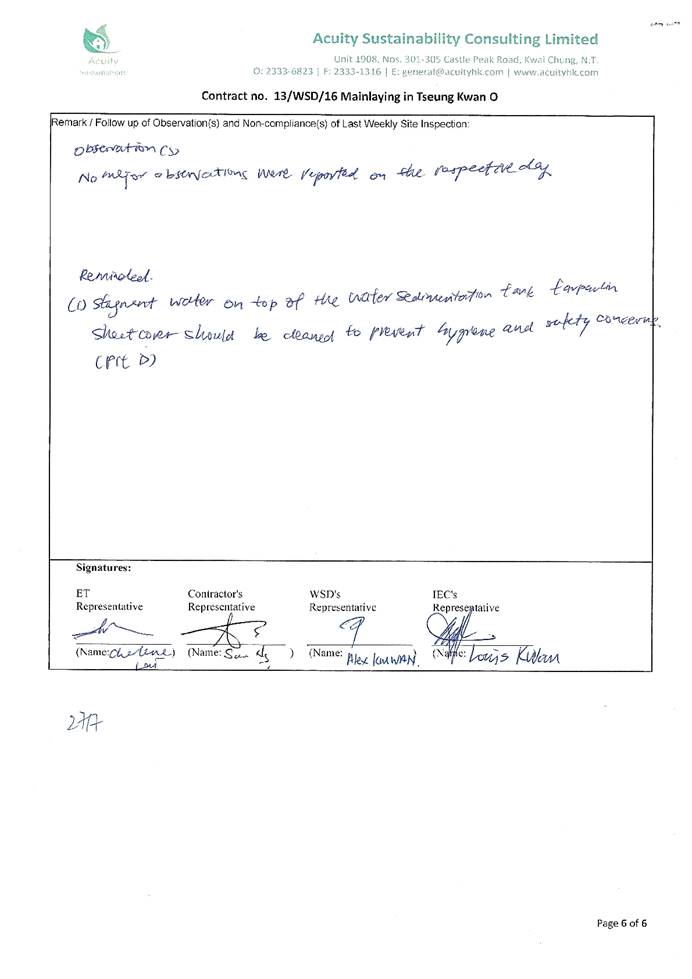 Acuity Sustainability Consulting Limited
Acuity
Sustainability
Unit 1908, Nos. 301-305 Castle Peak Road, Kwai Chung, N.T.
O: 2333-6823 | F: 2333-1316 | E: general@acuityhk.com | www.acuityhk.com
Contract no. 13/WSD/16 Mainlaying in Tseung Kwan O
Remark / Follow up of Observation(s) and Non-compliance(s) of Last Weekly Site Inspection:
Observation(s)
No major observations were reported on the respective day
Reminded.
(1) Stagnent water on top of the water sedimentation tank tarpaulin
sheet cover should be cleaned to prevent hygiene and safety concerns.
(Pit D)
Signatures:
ET Representative
Contractor's Representative
WSD's Representative
IEC's Representative
(Name: Chelene)
(Name: )
(Name: Alex KM WAN)
(Name: Louis Kwan
27/7
Page 6 of 6